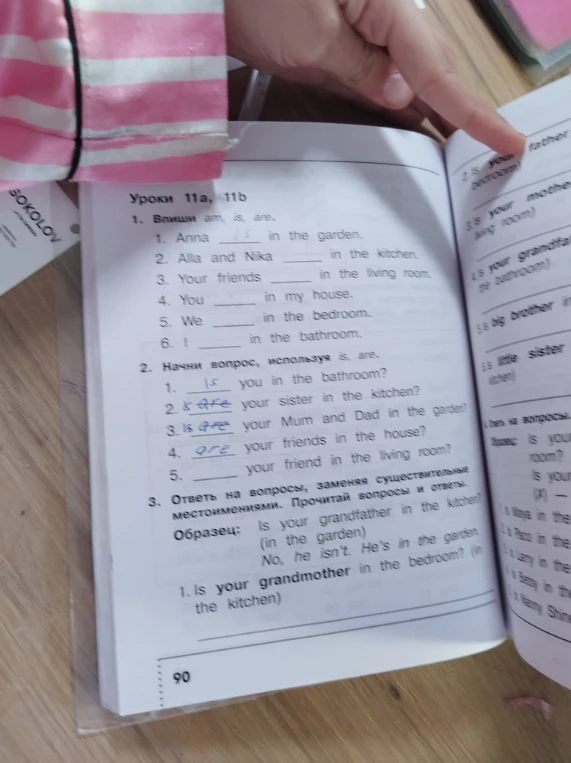 SOKOLOV
Уроки 11a, 11b
1. Впиши am, is, are.
1. Anna is in the garden.
2. Alla and Nika ______ in the kitchen.
3. Your friends ______ in the living room.
4. You ______ in my house.
5. We ______ in the bedroom.
6. I ______ in the bathroom.
2. Начни вопрос, используя is, are.
1. is you in the bathroom?
2. is are your sister in the kitchen?
3. is are your Mum and Dad in the garden?
4. are your friends in the house?
5. ______ your friend in the living room?
3. Ответь на вопросы, заменяя существительные
местоимениями. Прочитай вопросы и ответы.
Образец: Is your grandfather in the kitchen?
(in the garden)
No, he isn't. He's in the garden.
1. Is your grandmother in the bedroom? (in
the kitchen)
90
2. Is your father
bedroom)
your mothe
living room)
your grandfa
the bathroom)
big brother in
little sister
kitchen)
на вопросы.
Is you
room?
Is your
(X) —
in the
Paco in the
Larry in the
Betsy in th
Nanny Shine